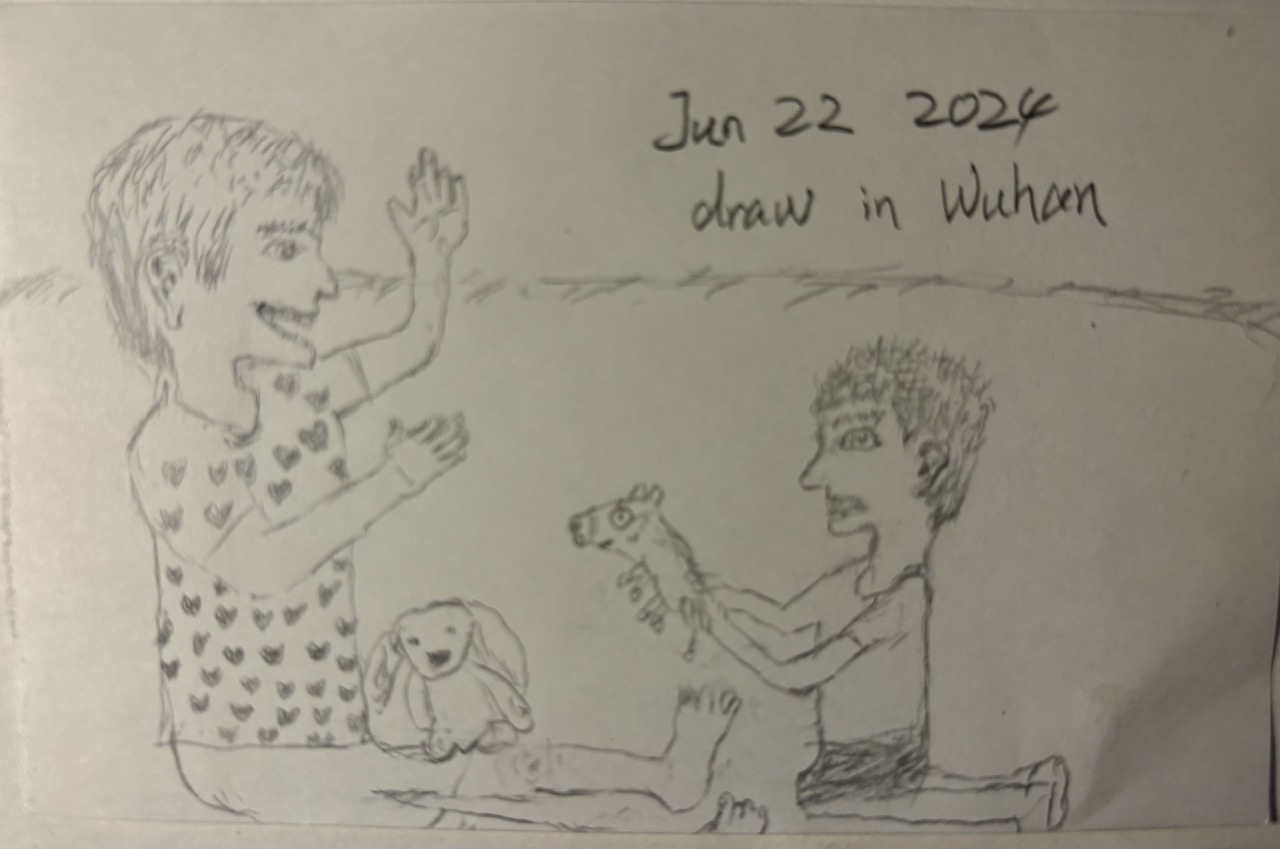 Jun 22 2024
draw in Wuhan